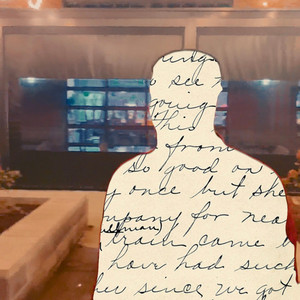 ungs
o see
going
This
from
so good on
y once but she
mpany for nea
train came b
have had such
since we got